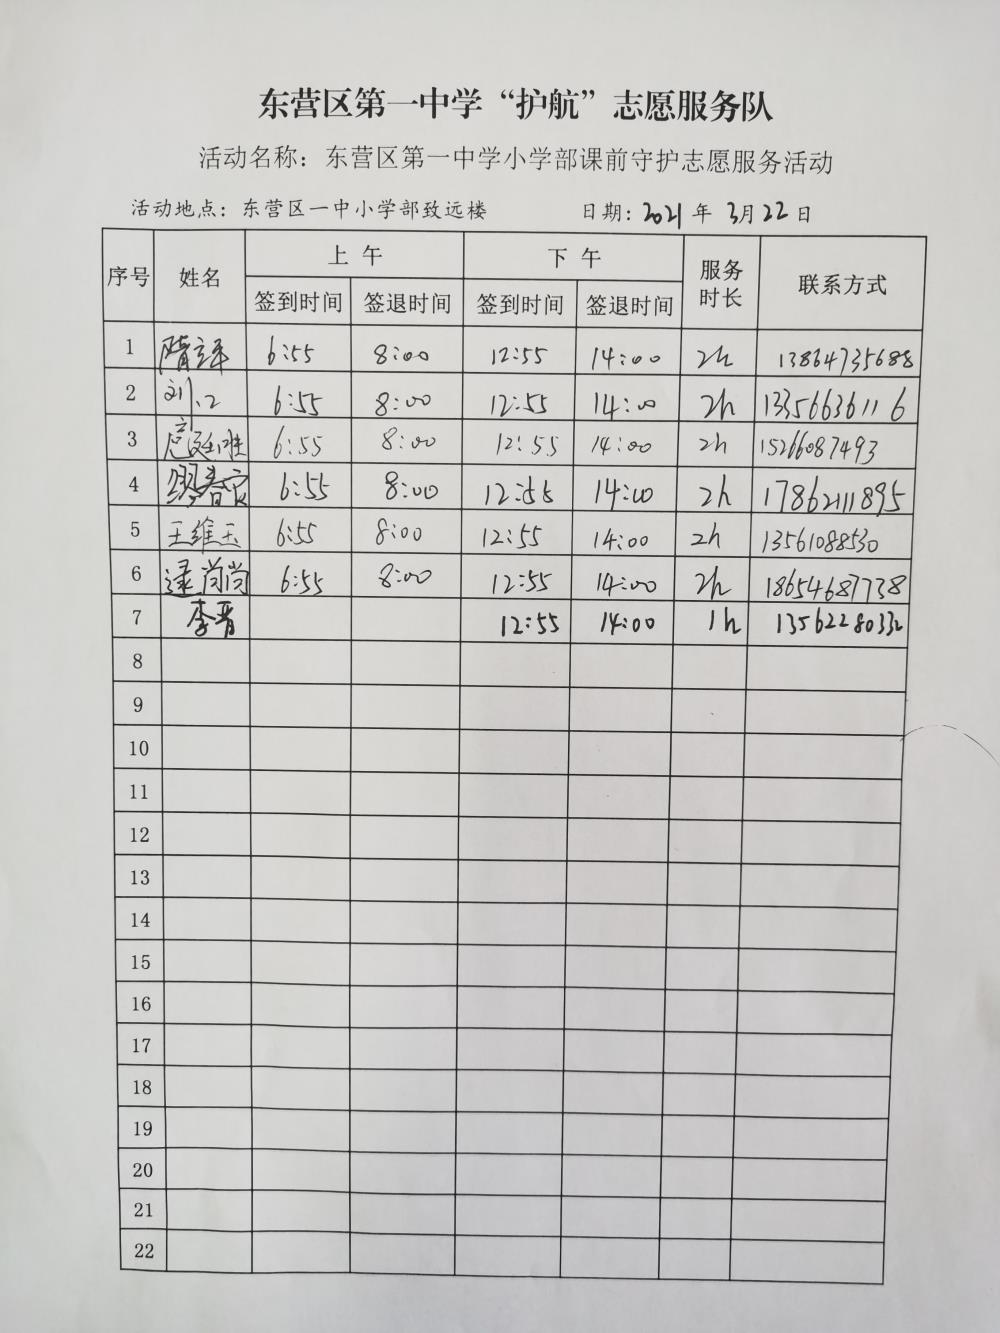 东营区第一中学“护航”志愿服务队
活动名称：东营区第一中学小学部课前守护志愿服务活动
活动地点：东营区一中小学部致远楼 日期：2021年3月22日
序号 姓名 上午 下午 服务时长 联系方式
签到时间 签退时间 签到时间 签退时间
1 6:55 8:00 12:55 14:00 2h 13864735688
2 6:55 8:00 12:55 14:00 2h 13356636116
3 6:55 8:00 12:55 14:00 2h 15266087493
4 6:55 8:00 12:55 14:00 2h 17862111895
5 王维玉 6:55 8:00 12:55 14:00 2h 13561088530
6 逯尚尚 6:55 8:00 12:55 14:00 2h 18654687738
7 李晋 12:55 14:00 1h 13562280332
8
9
10
11
12
13
14
15
16
17
18
19
20
21
22